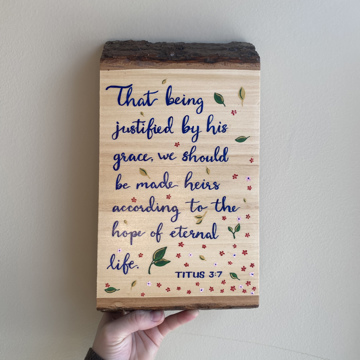 That being
justified by his
grace, we should
be made heirs
according to the
hope of eternal
life.
TITUS 3:7